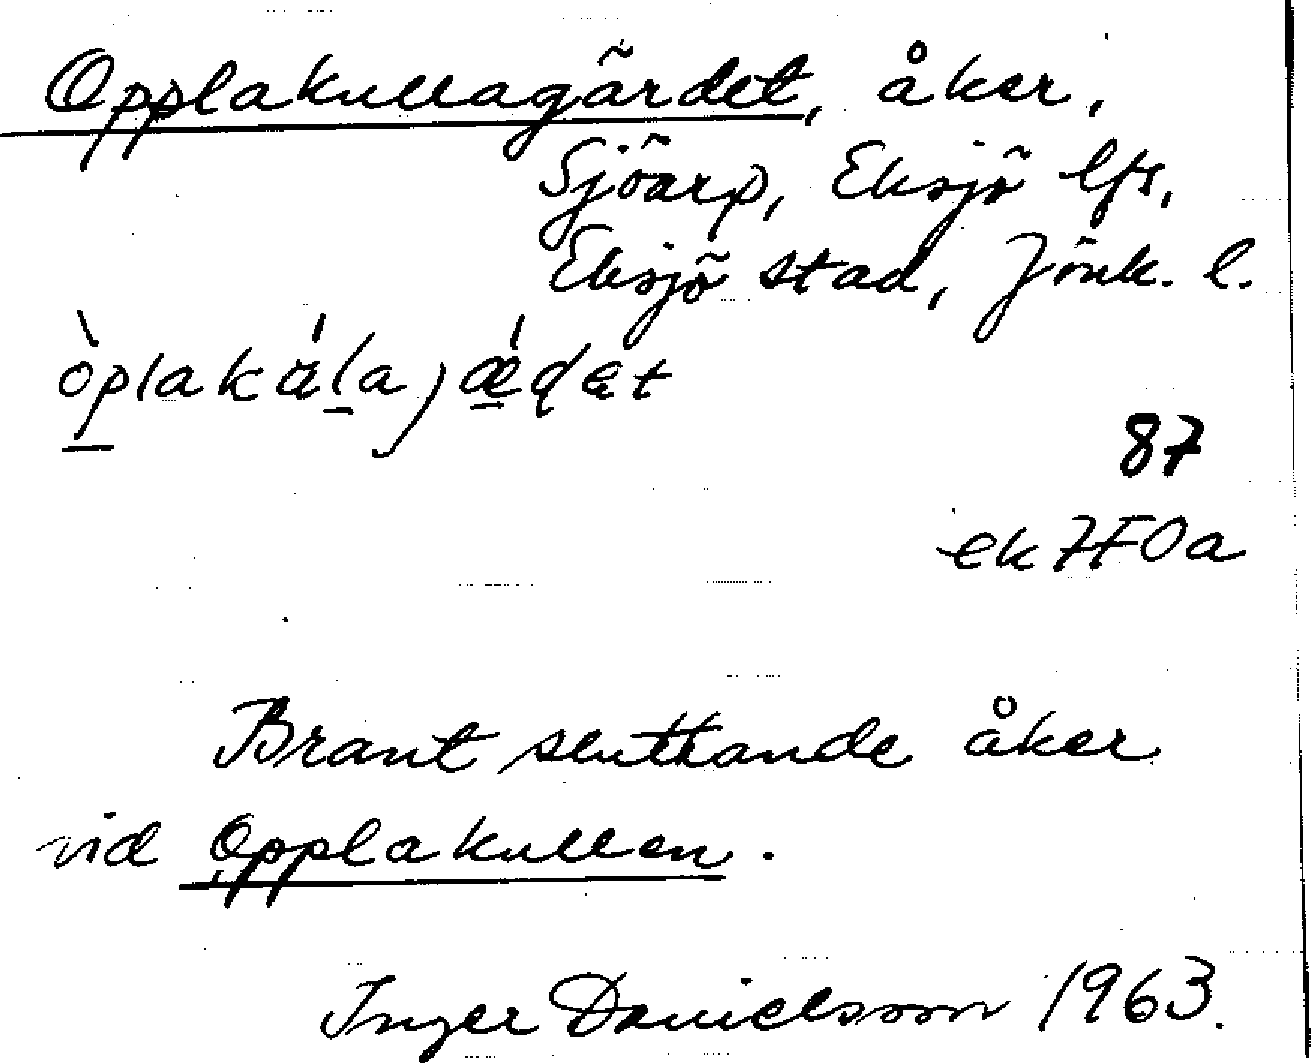 Opplakullagärdet, åker,
Sjöarp, Eksjö lfs,
Eksjö stad, Jönk. l.
87
ek 7F0a
Brant sluttande åker
vid Opplakullen.
Inger Danielsson 1963.